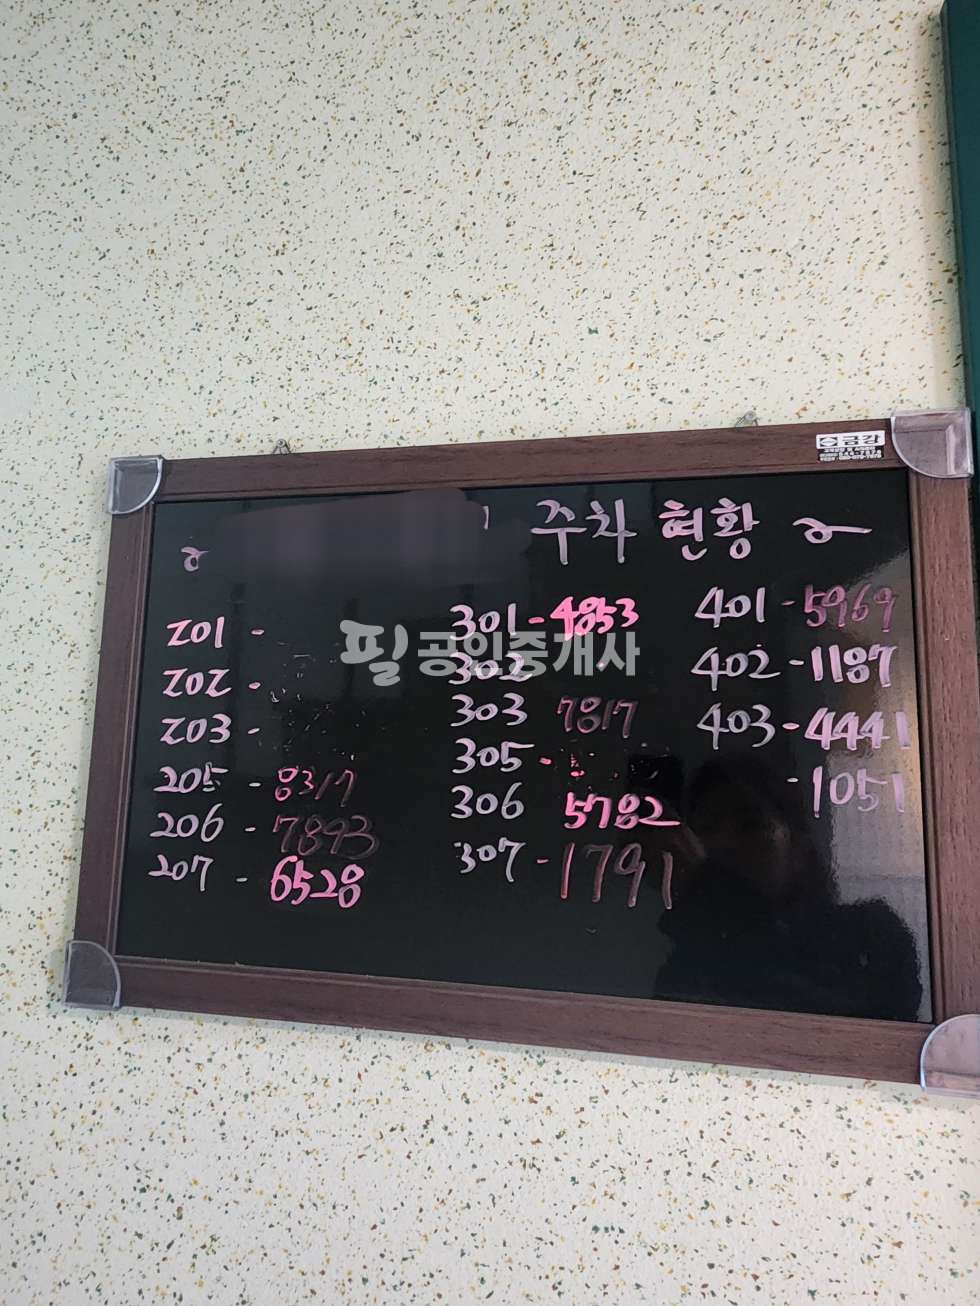 주차 현황
201 -
202 -
203 -
205 - 8317
206 - 7893
207 - 6528
301 - 4853
302
303 7817
305 -
306 5782
307 - 1791
401 - 5969
402 - 1187
403 - 4441
- 1051
필 공인중개사
금강